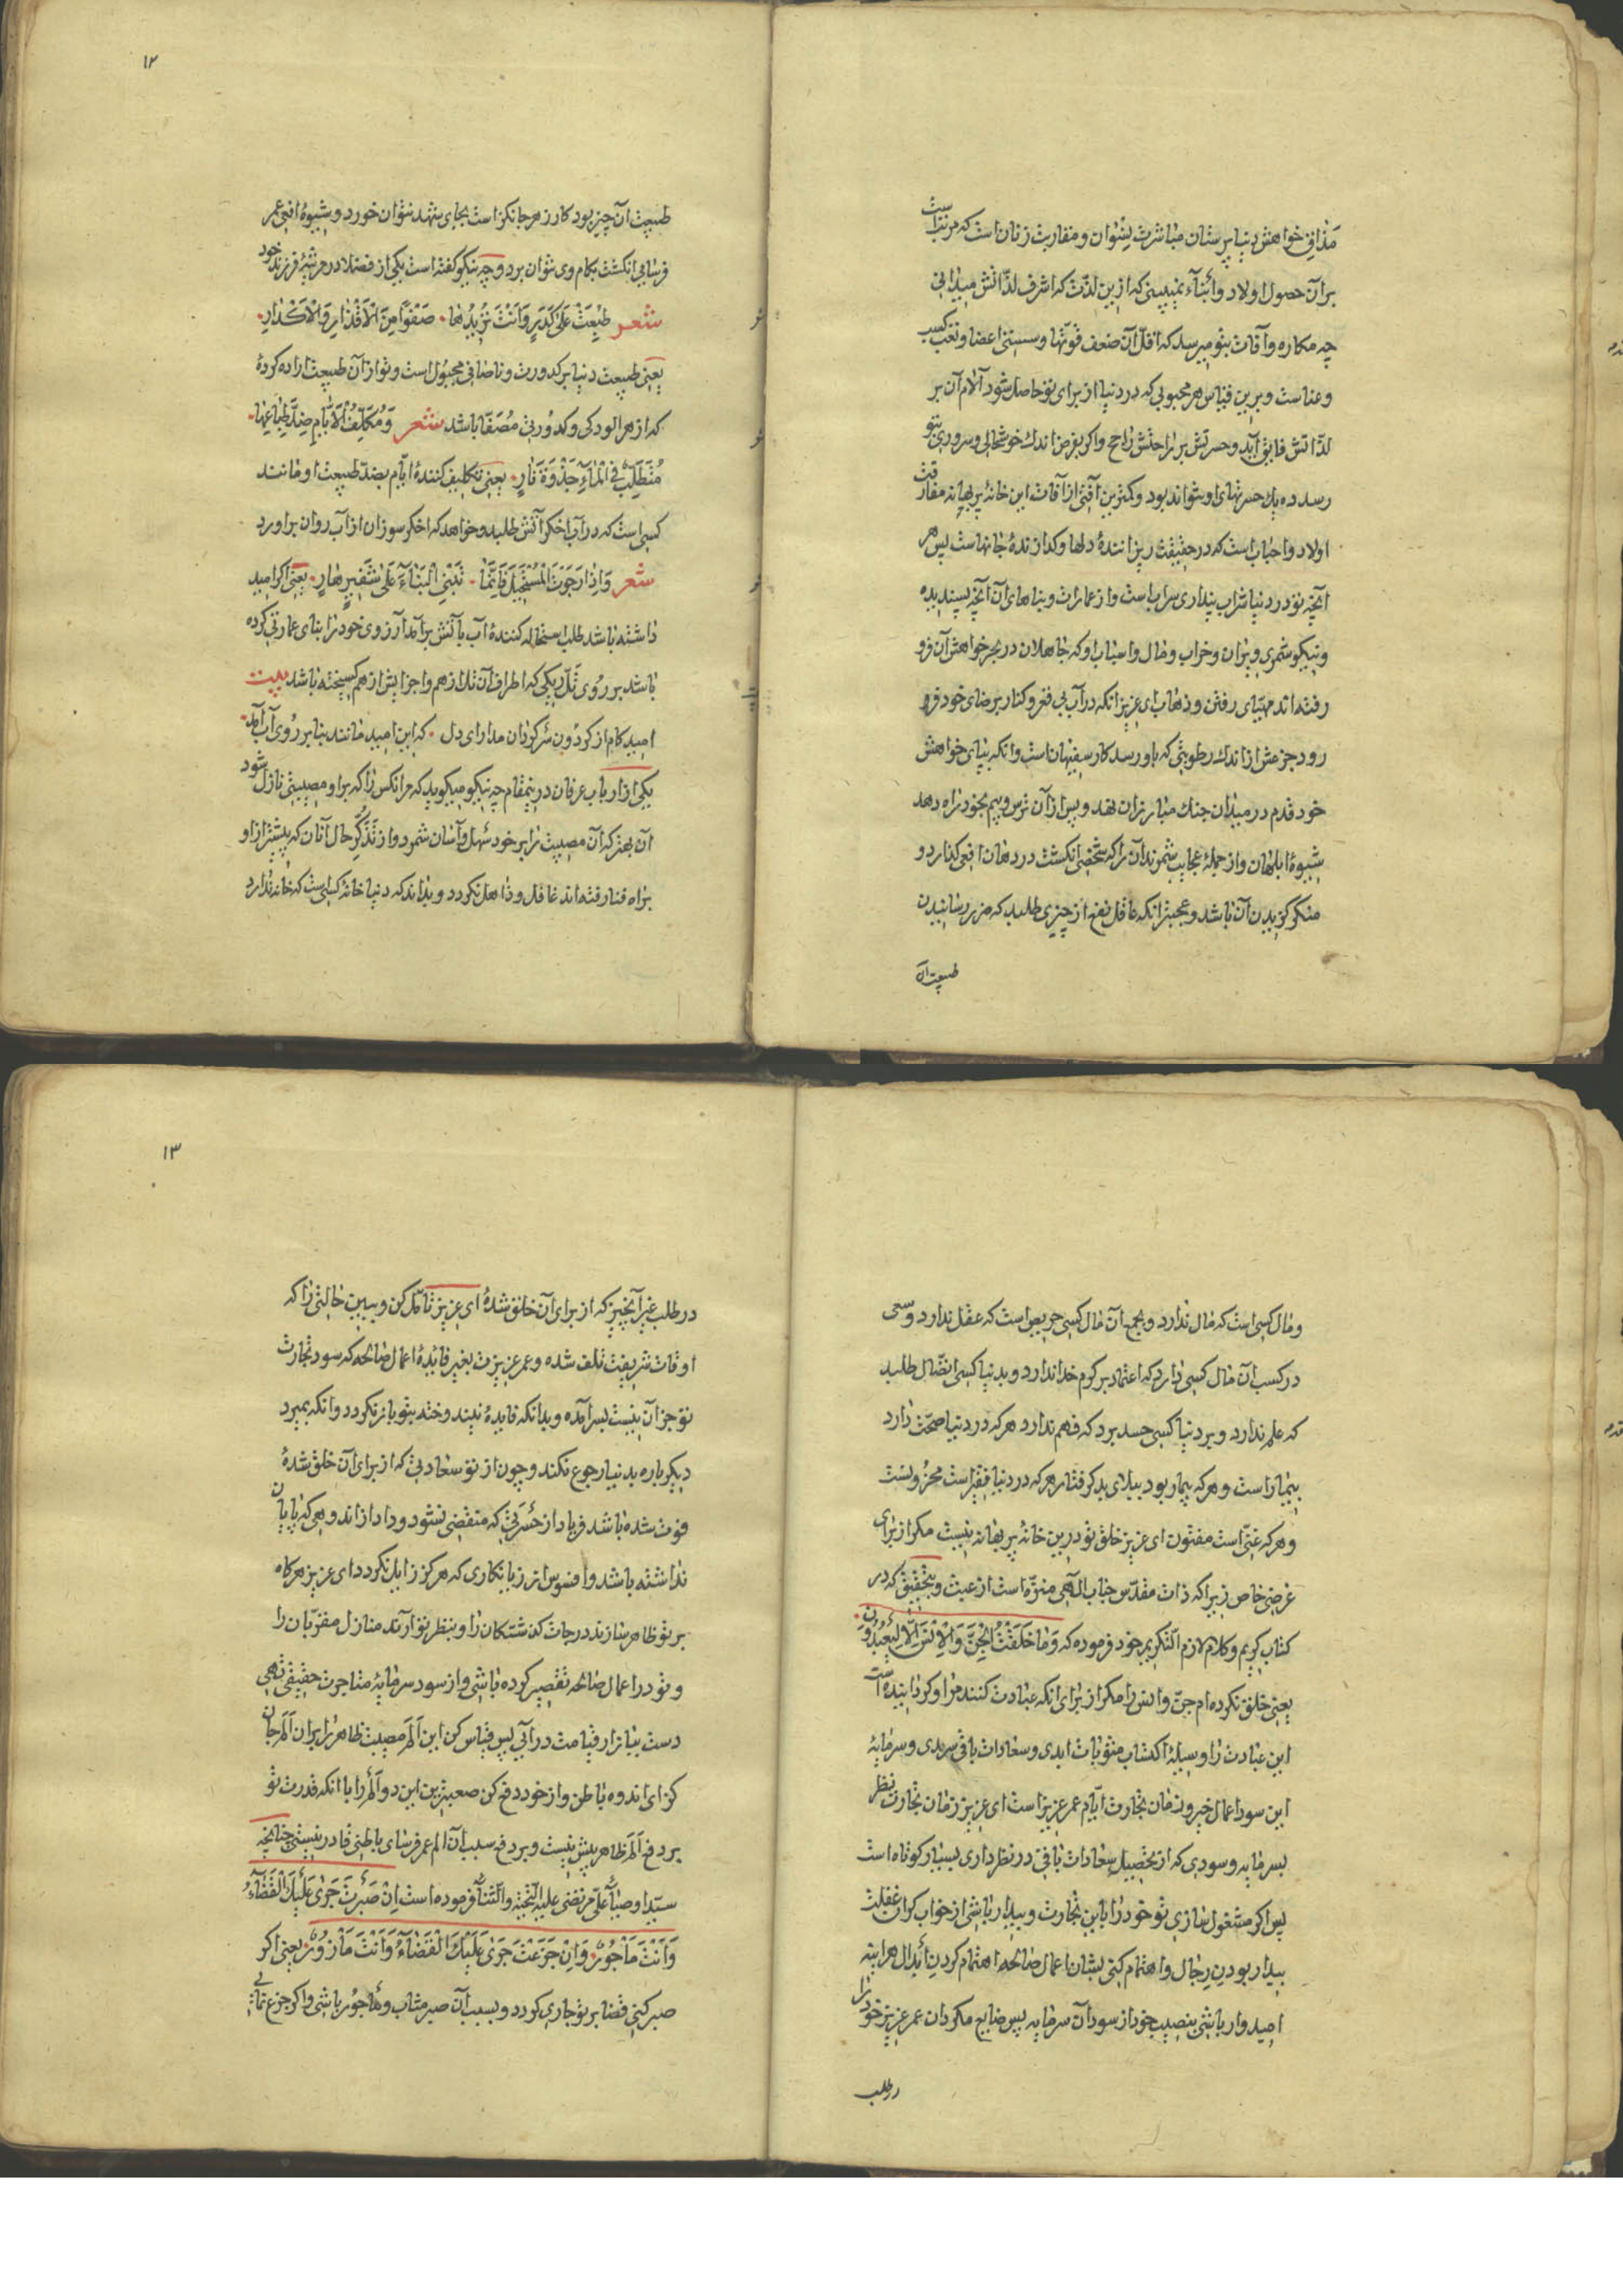 مذاق خواهش دنیا پرستان مباشرت نسوان و مقاربت زنان است که مرتب است
بر آن حصول اولاد و ابناء نمیبینی که ازین لذت که اشرف لذاتش میدانی
چه مکاره و آفات بتو میرسد که اقل آن ضعف قوتها و سستی اعضا و تعب کسب
و عناست و برین قیاس هر محبوبی که در دنیا از برای تو حاصل شود آلام آن بر
لذاتش فایق آید و حسرتش بر راحتش راجح و اکر بفرض اندک خوشحالی و سروری بتو
رسد ده یک حسرتهای او نتواند بود و کمترین آفتی از آفات این خانهٔ پر بهانه مفارقت
اولاد و احباب است که در حقیقت ریزانندهٔ دلها و کدازندهٔ جانهاست پس هر
آنچه تو در دنیا شراب پنداری سراب است و از عمارات و بناهای آن آنچه پسندیده
و نیکو شمری ویران و خراب و مال و اسباب او که جاهلان در بحر خواهش آن فرو
رفته اند مهیای رفتن و ذهاب ای عزیز انکه در آب بی قعر و کنار برضای خود فرو
رود جزعش از اندک رطوبتی که باو رسد کار سفیهان است و انکه بپای خواهش
خود قدم در میدان جنک مبارزان نهد و پس از آن ترس و بیم بخود راه دهد
شیوهٔ ابلهان و از جملهٔ عجایب شمرند آن را که شخصی انکشت در دهان افعی کذارد و
منکر کزیدن آن باشد و عجبتر انکه عاقل نفع از چیزی طلبد که ضرر رسانیدن
طبیعت آن
۱۲
طبیعت آن چیز بود کار زهر جانکزاست بجای شهد نتوان خورد و بشیوهٔ افعی عمر
فرسایی انکشت بکام وی نتوان برد و چه نیکو کفته است یکی از فضلا در مرثیهٔ فرزند خود
شعر طُبِعَتْ عَلیٰ کَدَرٍ وَاَنْتَ تُرِیْدُهٰا صَفْوًا مِنَ الْاَقْذٰارِ وَالْاَکْدٰارِ
یعنی طبیعت دنیا بر کدورت و ناصافی مجبول است و تو از آن طبیعت اراده کردهٔ
که از هر الودکی و کدورتی مُصَفّا باشد شعر وَمُکَلِّفُ الْاَیّٰامِ ضِدَّ طِبٰاعِهٰا
مُتَطَلِّبٌ فِی الْمٰاءِ جَذْوَةَ نٰارٍ یعنی تکلیف کنندهٔ ایام بضد طبیعت او مانند
کسی است که در آب اخکر آتش طلبد و خواهد که اخکر سوزان از آب روان براورد
شعر وَاِذٰا رَجَوْتَ الْمُسْتَحِیْلَ فَاِنَّمٰا تَبْنِی الْبِنٰاءَ عَلیٰ شَفِیْرٍ هٰارٍ یعنی اکر امید
داشته باشد طلب استحاله کنندهٔ آب بآتش برآمد آرزوی خود را بنای عمارتی کرده
باشد بر روی تل ریکی که اطراف آن تل از هم و اجزایش از هم کسیخته باشد بیت
امید کام از کردون سرکردان مدار ای دل که این امید مانند بنا بر روی آب آمد
یکی از ارباب عرفان درینمقام چه نیکو میکوید که هر انکس را که بر او مصیبتی نازل شود
آن بهتر که آن مصیبت را بر خود سهل و آسان شمرد و از تذکّر حال آنان که پیشتر از او
براه فنا رفته اند غافل و ذاهل نکردد و بداند که دنیا خانهٔ کسی است که خانه ندارد
و مال کسی است که مال ندارد و بجمع آن مال کسی حریص است که عقل ندارد و سعی
در کسب آن مال کسی دارد که اعتماد بر کرم خدا ندارد و بدنیا کسی اتصال طلبد
که علم ندارد و بر دنیا کسی حسد برد که فهم ندارد هر که در دنیا صحّت دارد
بیمار است و هر که بیمار بود ببلای بد کرفتار هر که در دنیا فقیر است محزونست
و هر که غنی است مفتون ای عزیز خلق تو درین خانهٔ پر بهانه نیست مکر از برای
غرضی خاص زیرا که ذات مقدس جناب الهی منزه است از عبث و بتحقیق که در
کتاب کریم و کلام لازم التکریم خود فرموده که وَمٰا خَلَقْتُ الْجِنَّ وَالْاِنْسَ اِلّٰا لِیَعْبُدُوْنِ
یعنی خلق نکرده ام جن و انس را مکر از برای انکه عبادت کنند مرا و کردانیده است
این عبادت را وسیلهٔ اکتساب مثوبات ابدی و سعادات باقی سرمدی و سرمایهٔ
این سود اعمال خیر و زمان تجارت ایام عمر عزیز است ای عزیز زمان تجارت نظر
بسرمایه و سودی که از تحصیل سعادات باقی در نظر داری بسیار کوتاه است
پس اکر مشغول سازی تو خود را باین تجارت و بیدار باشی از خواب کران غفلت
بیدار بودن رجال و اهتمام کنی بشان اعمال صالحه اهتمام کردن ابدال هر اینه
امیدوار باشی بنصیب خود از سود آن سرمایه پس ضایع مکردان عمر عزیز خود را
در طلب
۱۳
در طلب غیر آنچیز که از برای آن خلق شدهٔ ای عزیز تامل کن و ببین حالتی را که
اوقات شریفت تلف شده و عمر عزیزت بغیر فایدهٔ اعمال صالحه که سود تجارت
تو جز آن نیست بسر آمده و بدانکه فایدهٔ نیندوخته بتو باز نکردد و انکه بمیرد
دیکر باره بدنیا رجوع نکند و چون از تو سعادتی که از برای آن خلق شدهٔ
فوت شده باشد فریاد از حسرتی که منقضی نشود و داد از اندوهی که پایان
نداشته باشد و افسوس از زیانکاری که هرکز زایل نکردد ای عزیز هرکاه
بر تو ظاهر سازند درجات کذشتکان را و بنظر تو ارند منازل مقربان را
و تو در اعمال صالحه تقصیر کرده باشی و از سود سرمایهٔ متاجرت حقیقی تهی
دست ببازار قیامت درآیی پس قیاس کن این الم مصیبت ظاهر را بر آن الم جان
کزای اندوه باطن و از خود دفع کن صعبترین این دو الم را با انکه قدرت تو
بر دفع الم ظاهر بیش نیست و بر دفع سبب آن الم عمر فرسای باطنی قادر نیستی چنانچه
سید اوصیا علی مرتضی علیه التحیة و الثنا فرموده است اِنْ صَبَرْتَ جَرٰی عَلَیْكَ الْقَضٰاءُ
وَاَنْتَ مَاْجُوْرٌ وَاِنْ جَزَعْتَ جَرٰی عَلَیْكَ الْقَضٰاءُ وَاَنْتَ مَاْزُوْرٌ یعنی اکر
صبر کنی قضا بر تو جاری کردد و بسبب آن صبر مثاب و ماجور باشی و اکر جزع نمایی